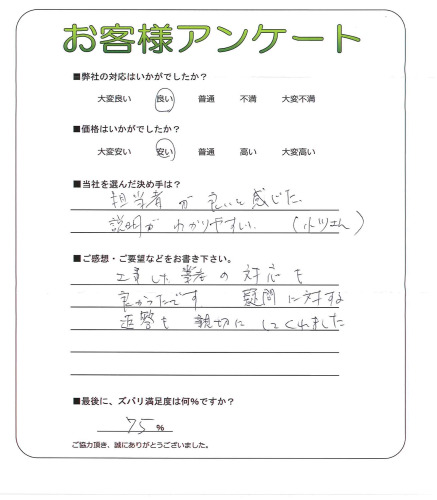 お客様アンケート
■弊社の対応はいかがでしたか？
大変良い 良い 普通 不満 大変不満
■価格はいかがでしたか？
大変安い 安い 普通 高い 大変高い
■当社を選んだ決め手は？
担当者が良いと感じた
説明がわかりやすい。
■ご感想・ご要望などをお書き下さい。
工事した業者の対応も
良かったです 疑問に対する
返答も親切にしてくれました
■最後に、ズバリ満足度は何％ですか？
75％
ご協力頂き、誠にありがとうございました。